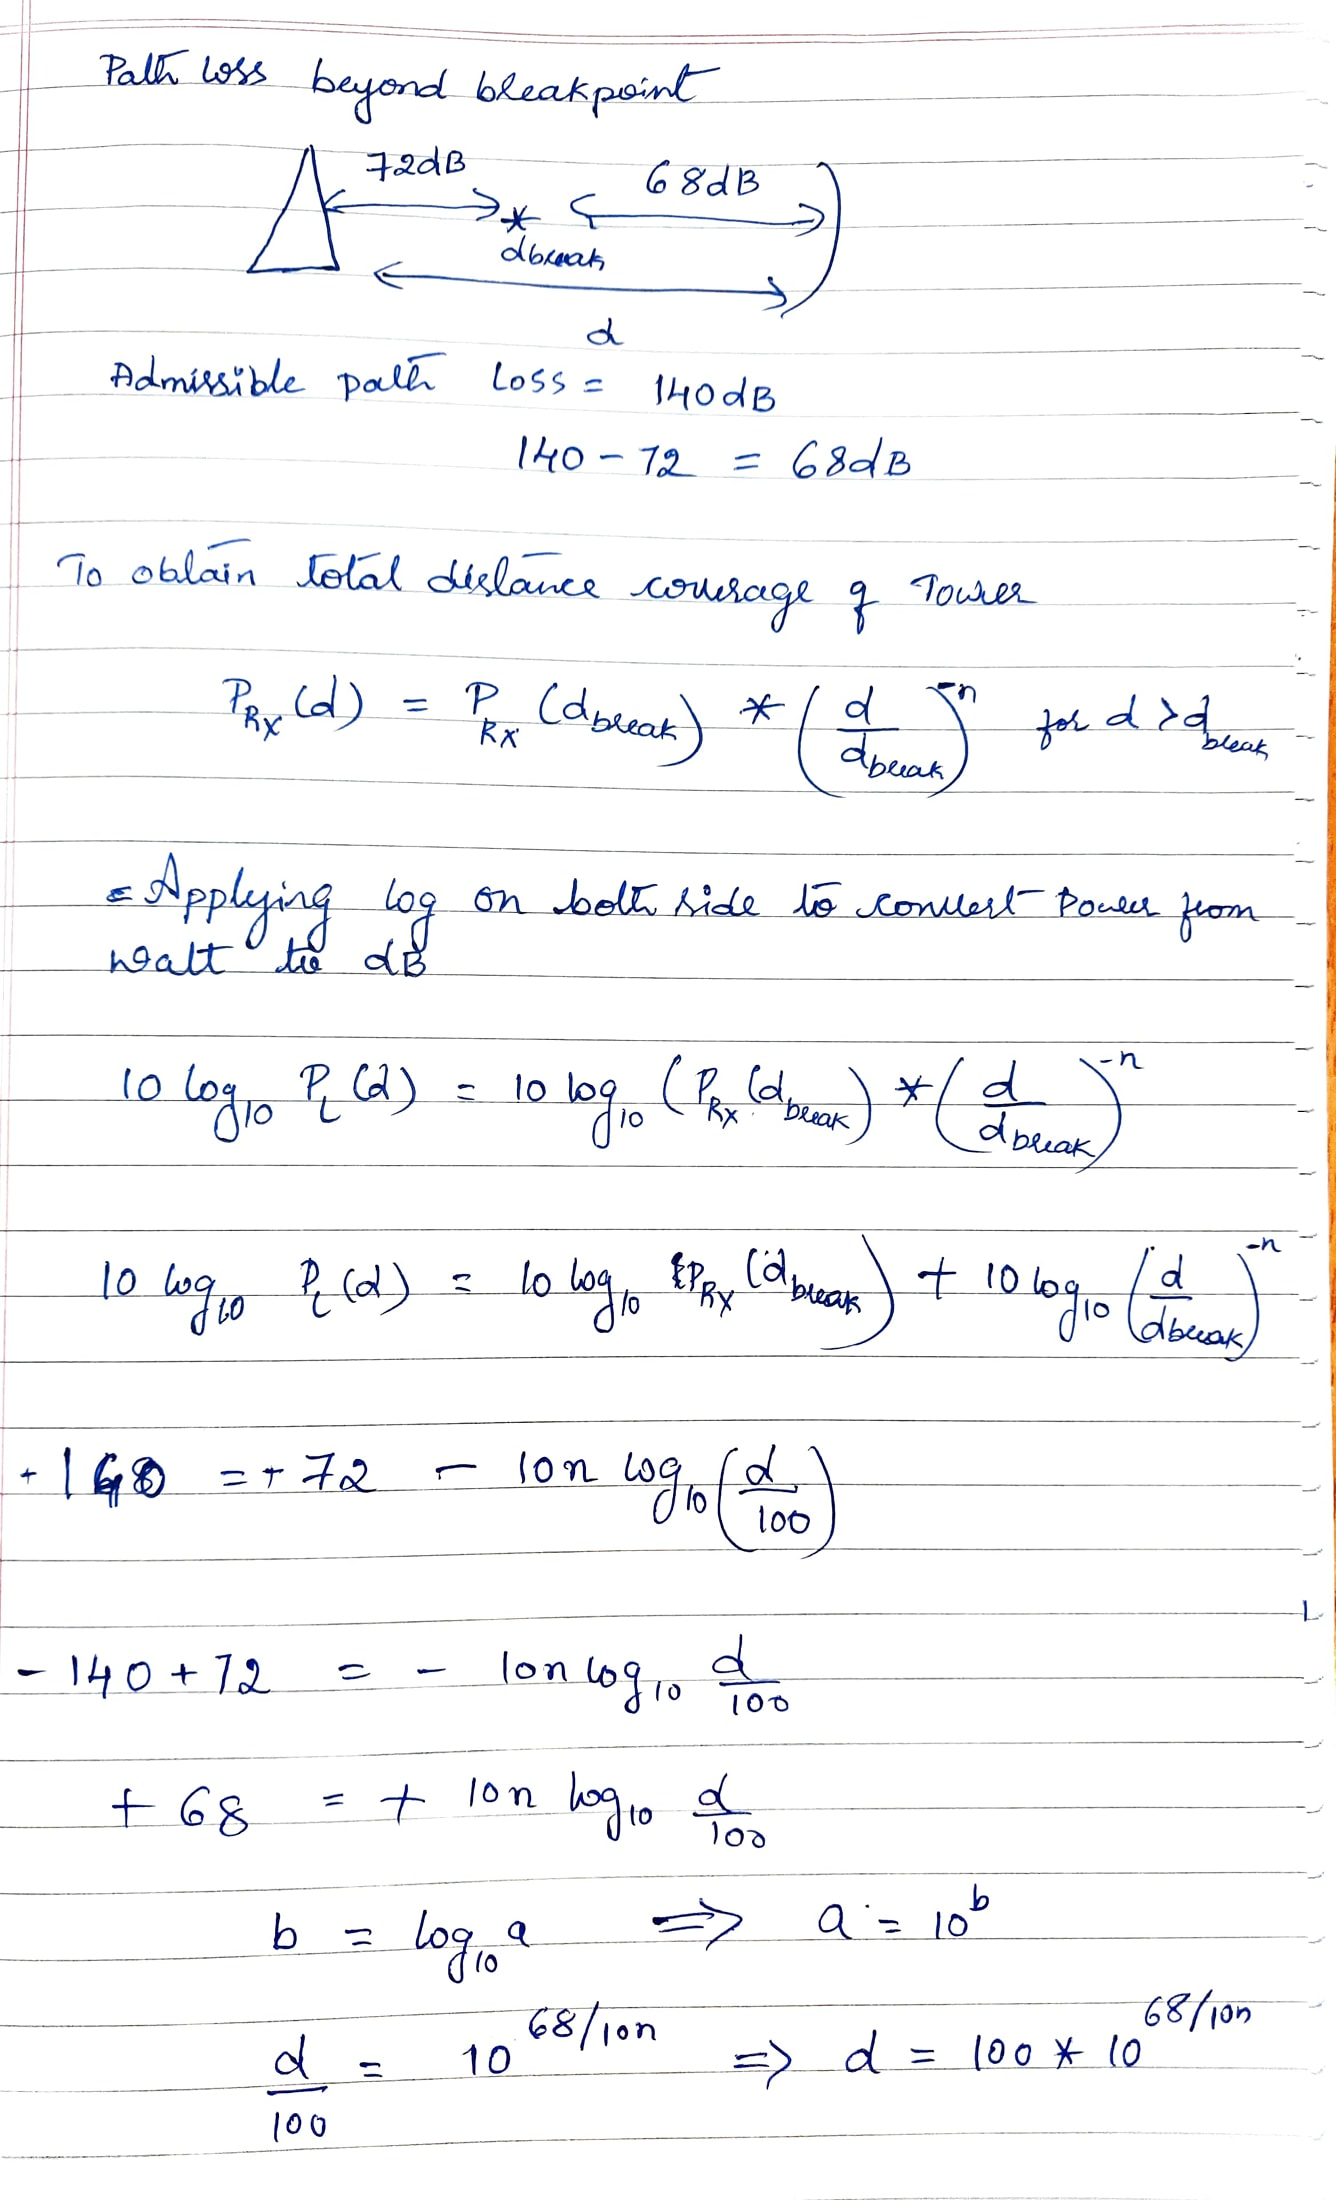 Path loss beyond breakpoint
72dB
68dB
dbreak
d
Admissible path loss = 140dB
140 - 72 = 68dB
To obtain total distance coverage of Tower
P_RX (d) = P_RX (d_break) * (d/d_break)^-n for d > d_break
= Applying log on both side to convert power from
watt to dB
10 log_10 P_L (d) = 10 log_10 (P_RX (d_break) * (d/d_break)^-n
10 log_10 P_L (d) = 10 log_10 P_RX (d_break) + 10 log_10 (d/d_break)^-n
+ 140 = + 72 - 10n log_10 (d/100)
- 140 + 72 = - 10n log_10 d/100
+ 68 = + 10n log_10 d/100
b = log_10 a => a = 10^b
d/100 = 10^68/10n => d = 100 * 10^68/10n